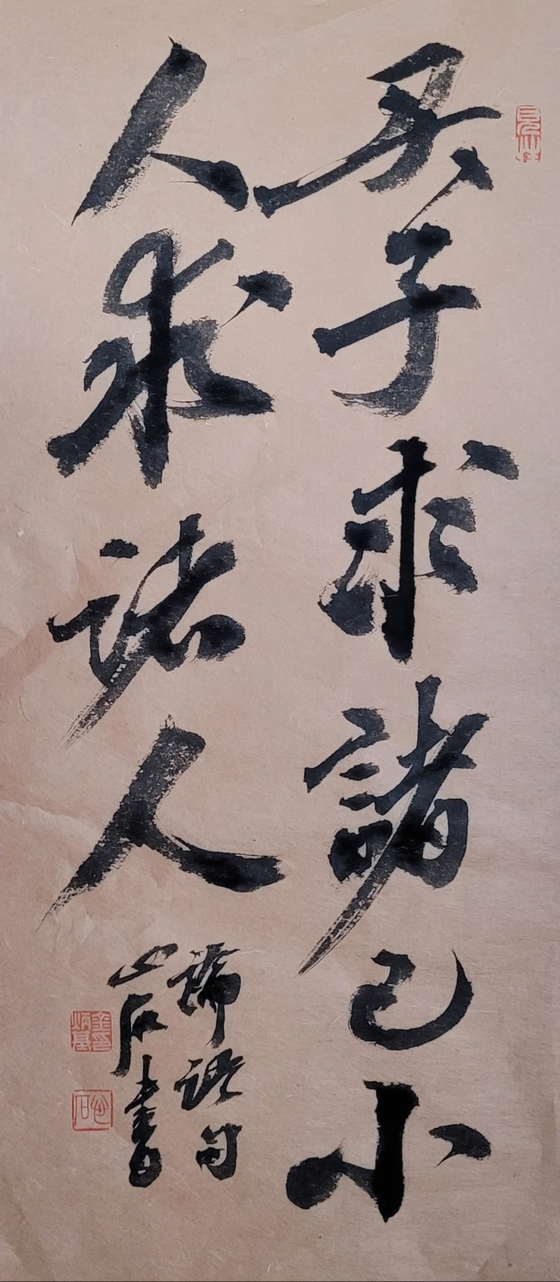 君子求諸己小
人求諸人
論語句
山石書